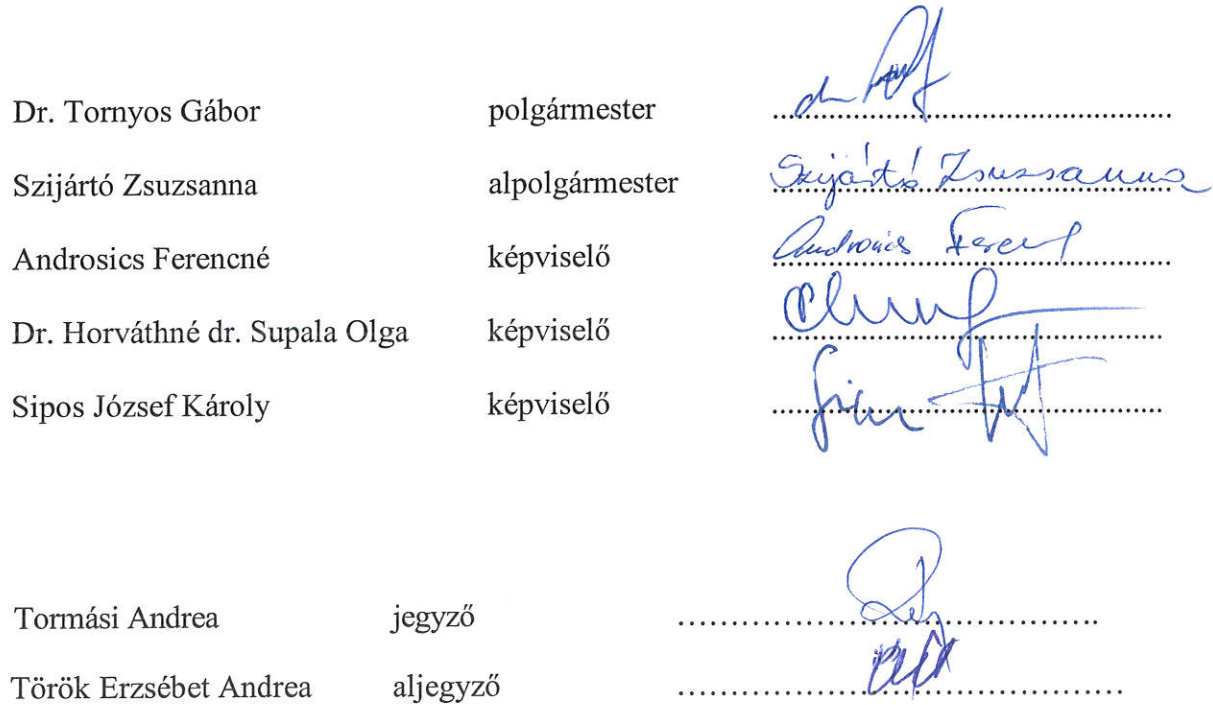 Dr. Tornyos Gábor polgármester dr
Szijártó Zsuzsanna alpolgármester Szijártó Zsuzsanna
Androsics Ferencné képviselő Androsics Ferenc
Dr. Horváthné dr. Supala Olga képviselő
Sipos József Károly képviselő
Tormási Andrea jegyző
Török Erzsébet Andrea aljegyző